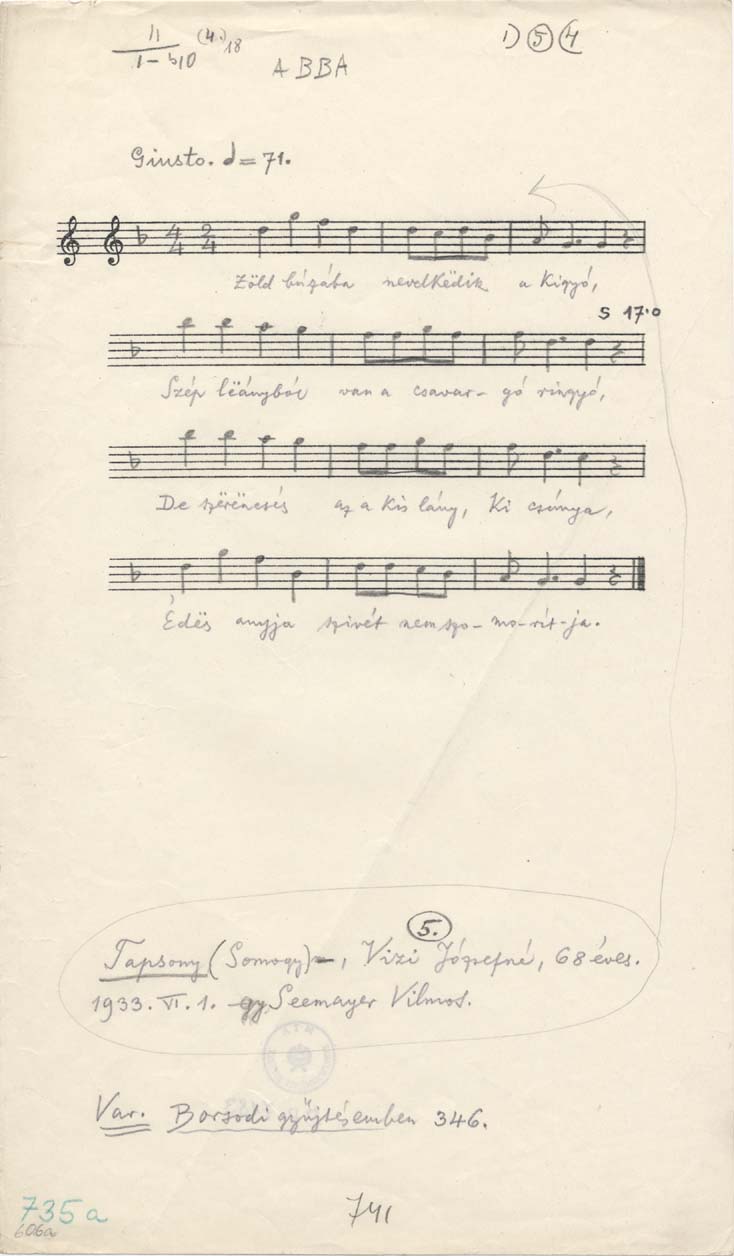 11 (4.) 18
1 - b10
ABBA
1) 5 4
Giusto. = 71.
4 2
4 4
Zöld búzába nevelkëdik a Kigyó,
S 17.0
Szép lëányból van a csavar- gó ringyó,
De szërëncsés az a kis lány, Ki csúnya,
Édës anyja szivét nem szo- mo-rít-ja.
5.
Tapsony (Somogy), Vizi Józsefné, 68 éves.
1933. VI. 1. gy. Seemayer Vilmos.
Var. Borsodi gyűjtésemben 346.
735a
606a
741